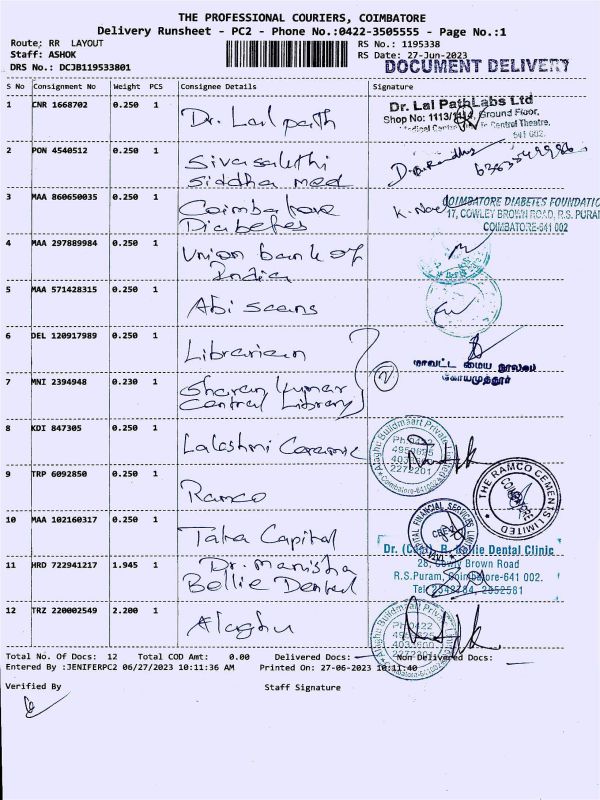 THE PROFESSIONAL COURIERS, COIMBATORE
Delivery Runsheet - PC2 - Phone No.:0422-3505555 - Page No.:1
Route: RR LAYOUT
RS No.: 1195338
Staff: ASHOK
RS Date: 27-Jun-2023
DRS No.: DCJB119533801
DOCUMENT DELIVERY
S No Consignment No Weight PCS Consignee Details Signature
1 CNR 1668702 0.250 1 Dr. Lal path
Dr. Lal PathLabs Ltd
Shop No: 1113/1114, Ground Floor,
Central Theatre,
641 002.
2 PON 4540512 0.250 1 Sivasakthi
Siddha med
3 MAA 860650035 0.250 1 Coimbatore
Diabetes
COIMBATORE DIABETES FOUNDATION
17, COWLEY BROWN ROAD, R.S. PURAM
COIMBATORE-641 002
4 MAA 297889984 0.250 1 Union bank of
India
5 MAA 571428315 0.250 1 Abi scans
6 DEL 120917989 0.250 1 Librarian
மாவட்ட மைய நூலகம்
கோயமுத்தூர்
7 MNI 2394948 0.230 1 Sharan Kumar
Central Library
2
8 KDI 847305 0.250 1 Lalashmi Ceramic
Alaghu Buildmaart Private Limited
Ph:0422
2272201
Coimbatore-641002
9 TRP 6092850 0.250 1 Ramco
THE RAMCO CEMENTS LIMITED
COIMBATORE
10 MAA 102160317 0.250 1 Tata Capital
TATA CAPITAL FINANCIAL SERVICES LIMITED
CBE
11 HRD 722941217 1.945 1 Dr. Manisha
Bellie Dental
Bellie Dental Clinic
28, Cowly Brown Road
R.S.Puram, Coimbatore-641 002.
Tel: 2552581
12 TRZ 220002549 2.200 1 Alaghu
Alaghu Buildmaart Private Limited
Ph:0422
2272201
Coimbatore-641002
Total No. Of Docs: 12 Total COD Amt: 0.00 Delivered Docs: Non Delivered Docs:
Entered By :JENIFERPC2 06/27/2023 10:11:36 AM Printed On: 27-06-2023 10:11:40
Verified By Staff Signature